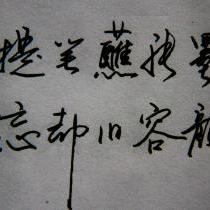 提笔蘸新墨
忘却旧容颜